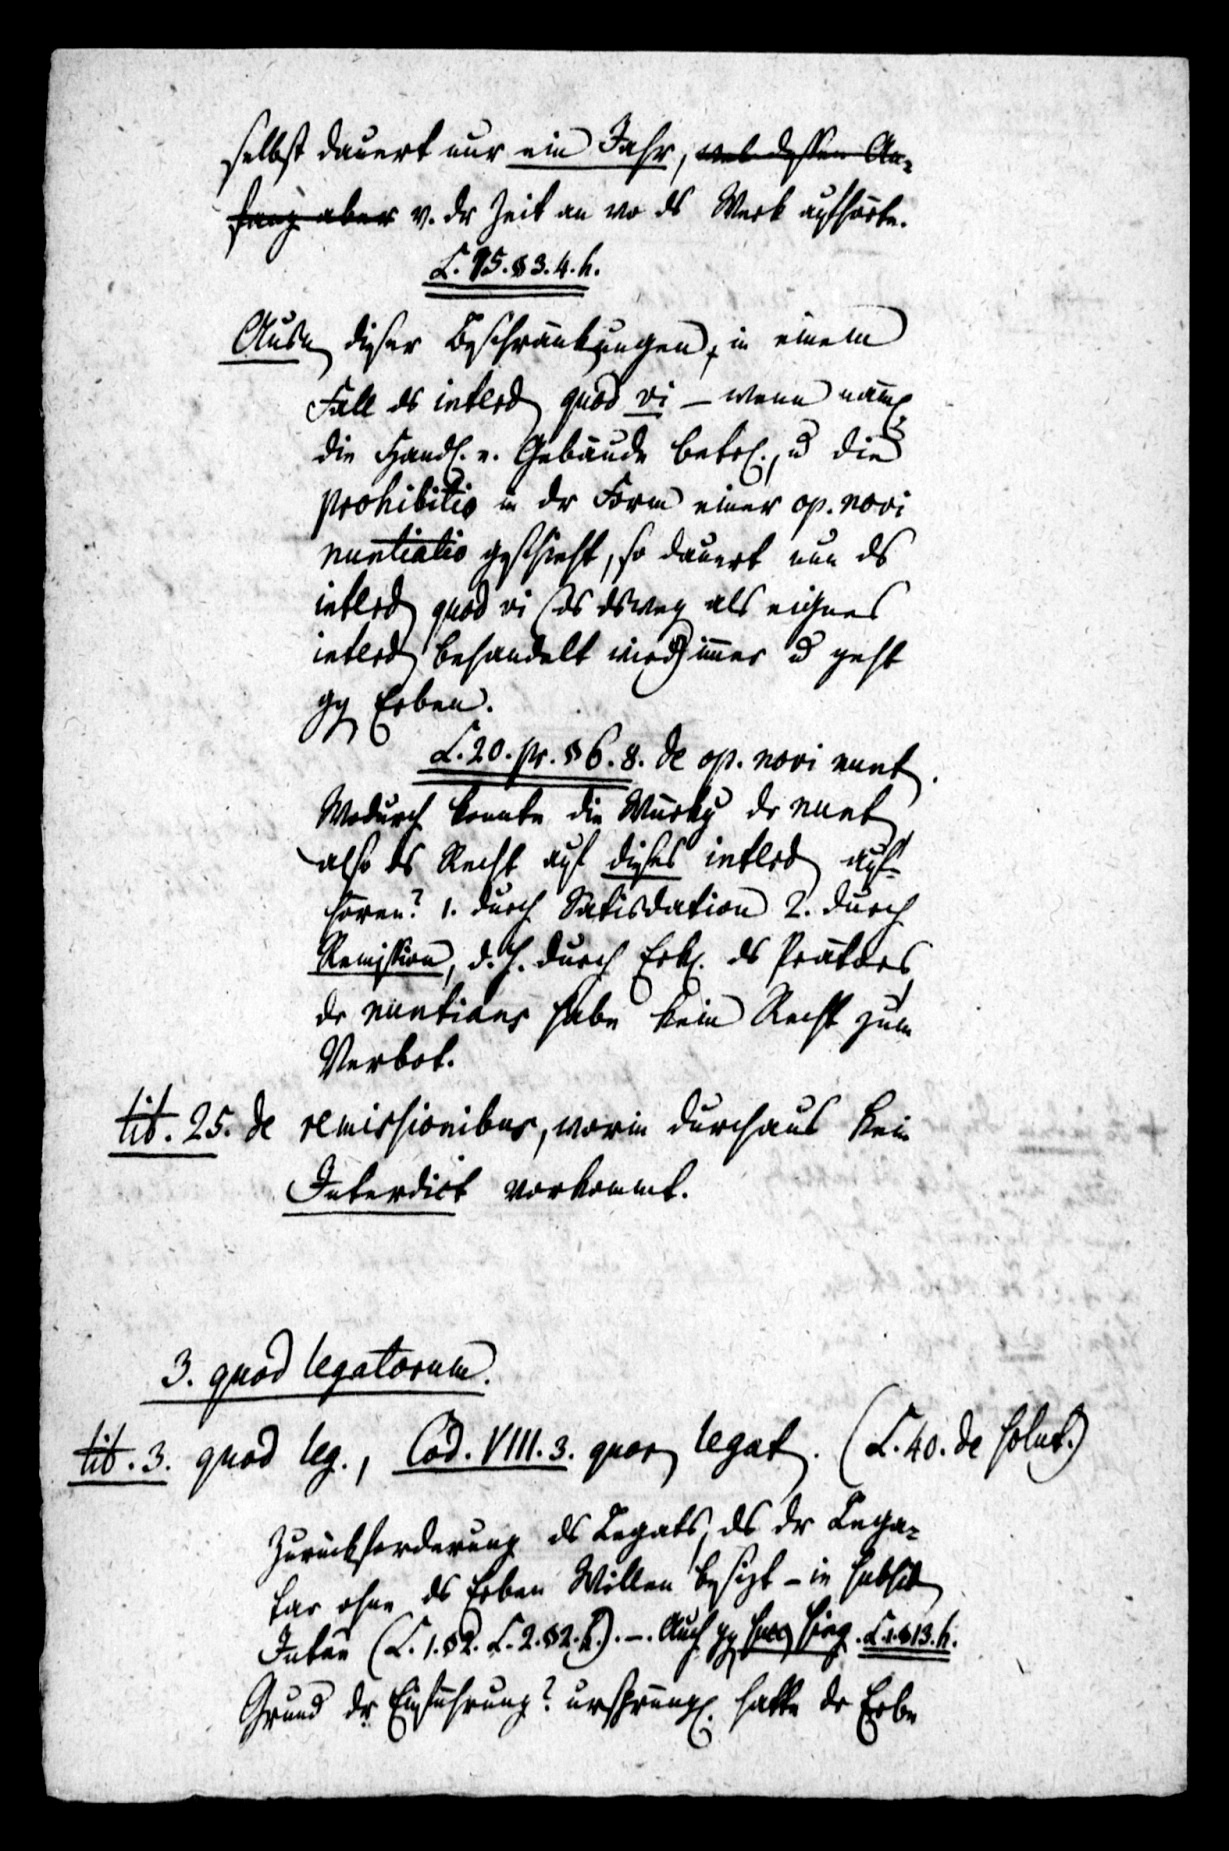 selbst dauert nur ein Jahr, und dessen An=
fang aber v. dr Zeit an wo ds Werk aufhörte.
L. 15. § 3. 4. h.
Ausn dieser Beschränkungen, in einem
Fall ds interd quod vi – wenn näml
die Handl. e. Gebäude betr., u die
prohibitio in dr Form einer op. novi
nuntiatio geschieht, so dauert nun ds
interd quod vi (ds dsweg als eignes
interd behandelt wird) immer u geht
gg Erben.
L. 20. pr. § 6. 8. de op. novi nunt.
Wodurch konnte die Würkg dr nunt
also ds Recht auf dieses interd auf=
hören? 1. durch Satisdation 2. durch
Remission, d. h. durch Erkl. ds Prätors,
dr nuntians habe kein Recht zum
Verbot.
tit. 25. de remissionibus, worin durchaus kein
Interdict vorkommt.
3. quod legatorum.
tit. 3. quod leg., Cod. VIII. 3. quor legat. (L. 40. de solut.)
Zurückforderung ds Legats, ds dr Lega=
tar ohne ds Erben Willen besizt – in subsid
(L. 1. § 2. L. 2. § 2. h.). –. Auch gg sing. L. 1. § 13. h.
Grund dr Einführung? ursprüngl. hatte dr Erbe